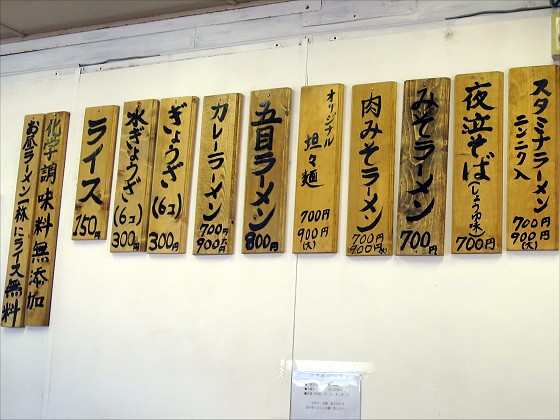 スタミナラーメン
ニンニク入
700円
900(大)
夜泣そば
(しょうゆ味)
700円
みそラーメン
700円
肉みそラーメン
700円
900円(大)
オリジナル
坦々麺
700円
900(大)
五目ラーメン
800円
カレーラーメン
700円
900円大
ぎょうざ(6コ)
300円
水ぎょうざ(6コ)
300円
ライス
150円
化学調味料無添加
お昼ラーメン一杯にライス無料